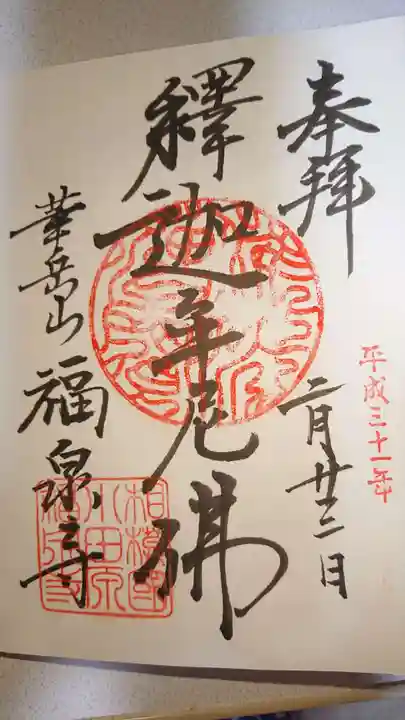 奉拝
平成三十一年
二月廿二日
釋迦牟尼佛
華岳山福泉寺
相模國
小田原
福泉寺